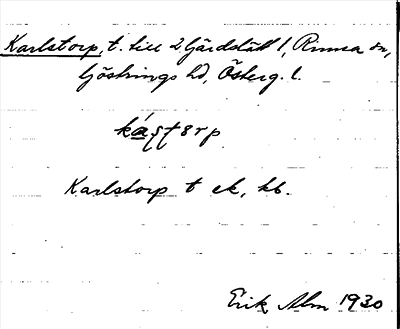 Karlstorp, t. till 2 Gärdslätt 1, Rinna sn,
Göstrings hd, Österg. l.
kás̨tꞷrp
Karlstorp t ek, kb.
Erik Alm 1930